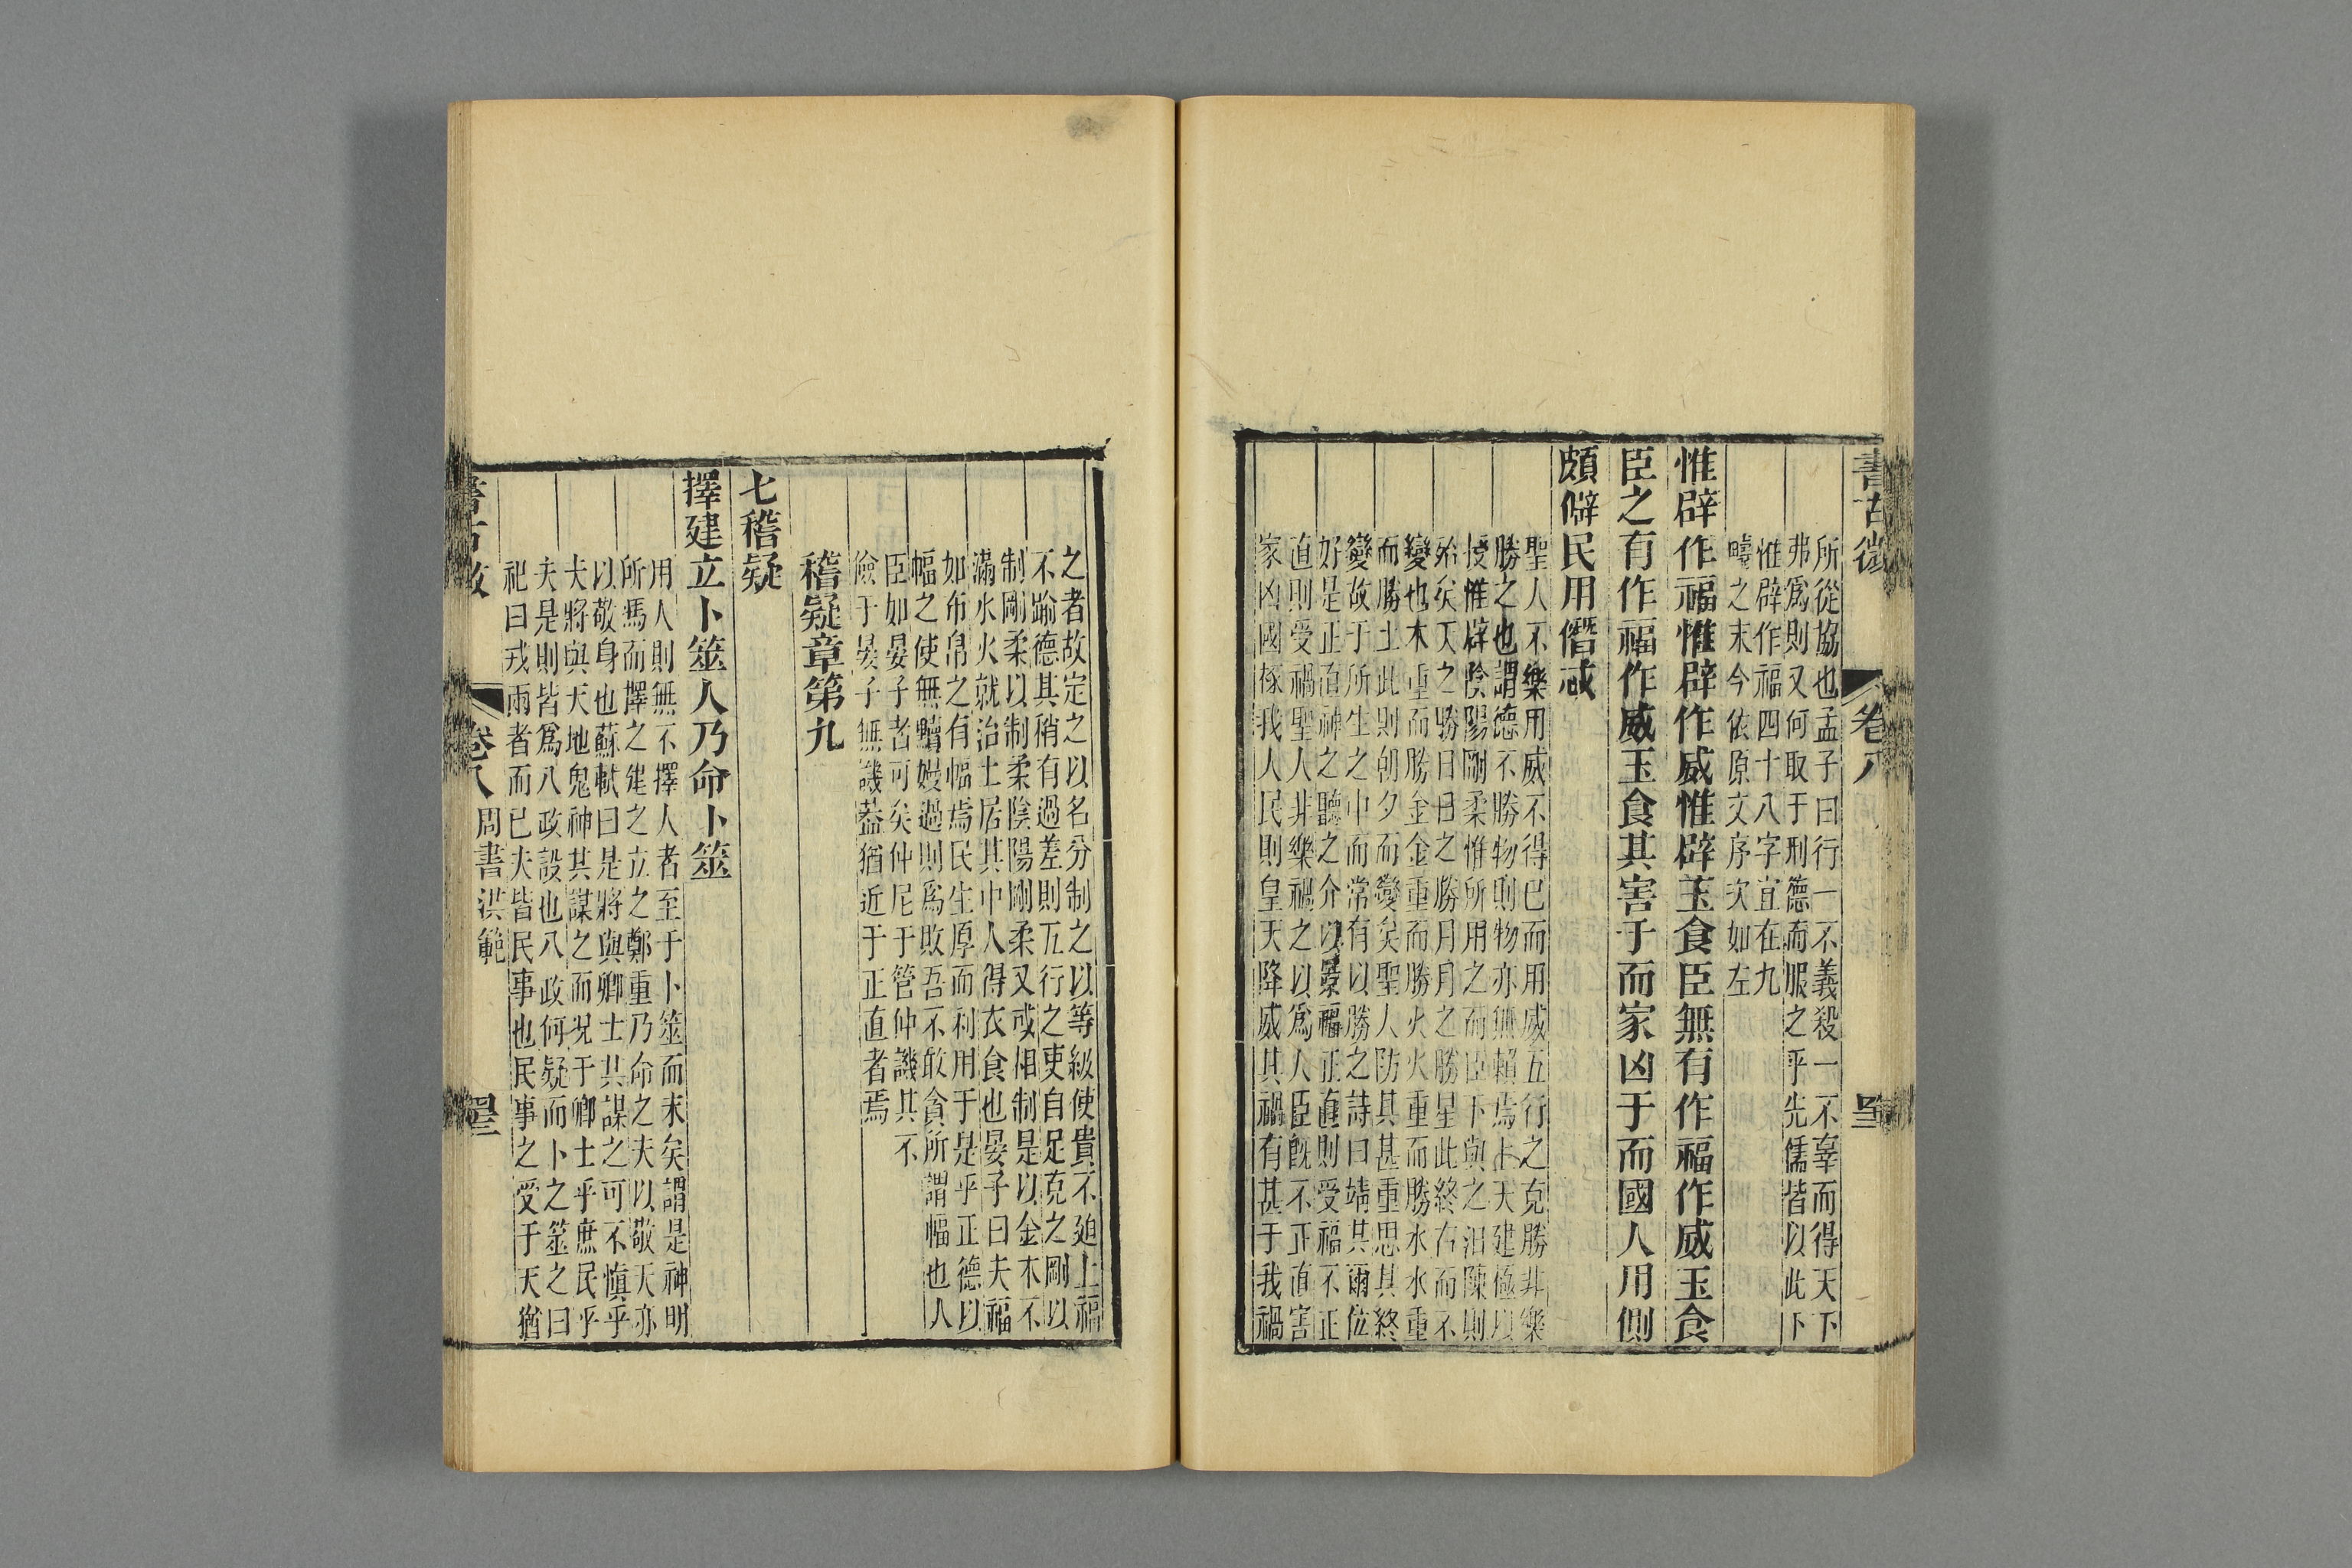 書古微
卷八
所從協也孟子曰行一不義殺一不辜而得天下
弗爲則又何取于刑德而服之乎先儒皆以此下
惟辟作福四十八字宜在九
疇之末今依原文序次如左
惟辟作福惟辟作威惟辟玉食臣無有作福作威玉食
臣之有作福作威玉食其害于而家凶于而國人用側
頗僻民用僭忒
聖人不樂用威不得已而用威五行之克勝非樂
勝之也謂德不勝物則物亦無賴焉上天建極以
授惟辟陰陽剛柔惟所用之而臣下與之汨陳則
殆矣天之勝日日之勝月月之勝星此終古而不
變也木重而勝金金重而勝火火重而勝水水重
而勝土此則朝夕而變矣聖人防其甚重思其終
變故于所生之中而常有以勝之詩曰靖其爾位
好是正直神之聽之介以景福正直則受福不正
直則受禍聖人非樂禍之以爲人臣旣不正直害
家凶國椓我人民則皇天降威其禍有甚于我禍
之者故定之以名分制之以等級使貴不廹上福
不踰德其稍有過差則五行之吏自足克之剛以
制剛柔以制柔陰陽剛柔又或相制是以金木不
滿水火就治土居其中人得衣食也晏子曰夫福
如布帛之有幅焉民生厚而利用于是乎正德以
幅之使無黷嫚過則爲敗吾不敢貪所謂幅也人
臣如晏子者可矣仲尼于管仲譏其不
儉于晏子無譏蓋猶近于正直者焉
稽疑章第九
七稽疑
擇建立卜筮人乃命卜筮
用人則無不擇人者至于卜筮而末矣謂是神明
所馮而擇之建之立之鄭重乃命之夫以敬天亦
以敬身也蘇軾曰是將與卿士其謀之可不慎乎
夫將與天地鬼神其謀之而况于卿士乎庶民乎
夫是則皆爲八政設也八政何疑而卜之筮之曰
祀曰戎雨者而已夫皆民事也民事之受于天猶
書古微
卷八
周書洪範